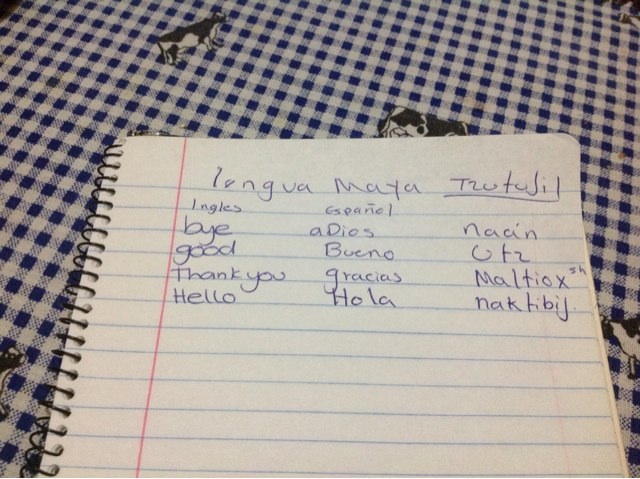 lengua Maya Tzutujil
Ingles Español
bye aDios nacin
good Bueno Utz
Thank you gracias Maltiox sh
Hello Hola naktibij